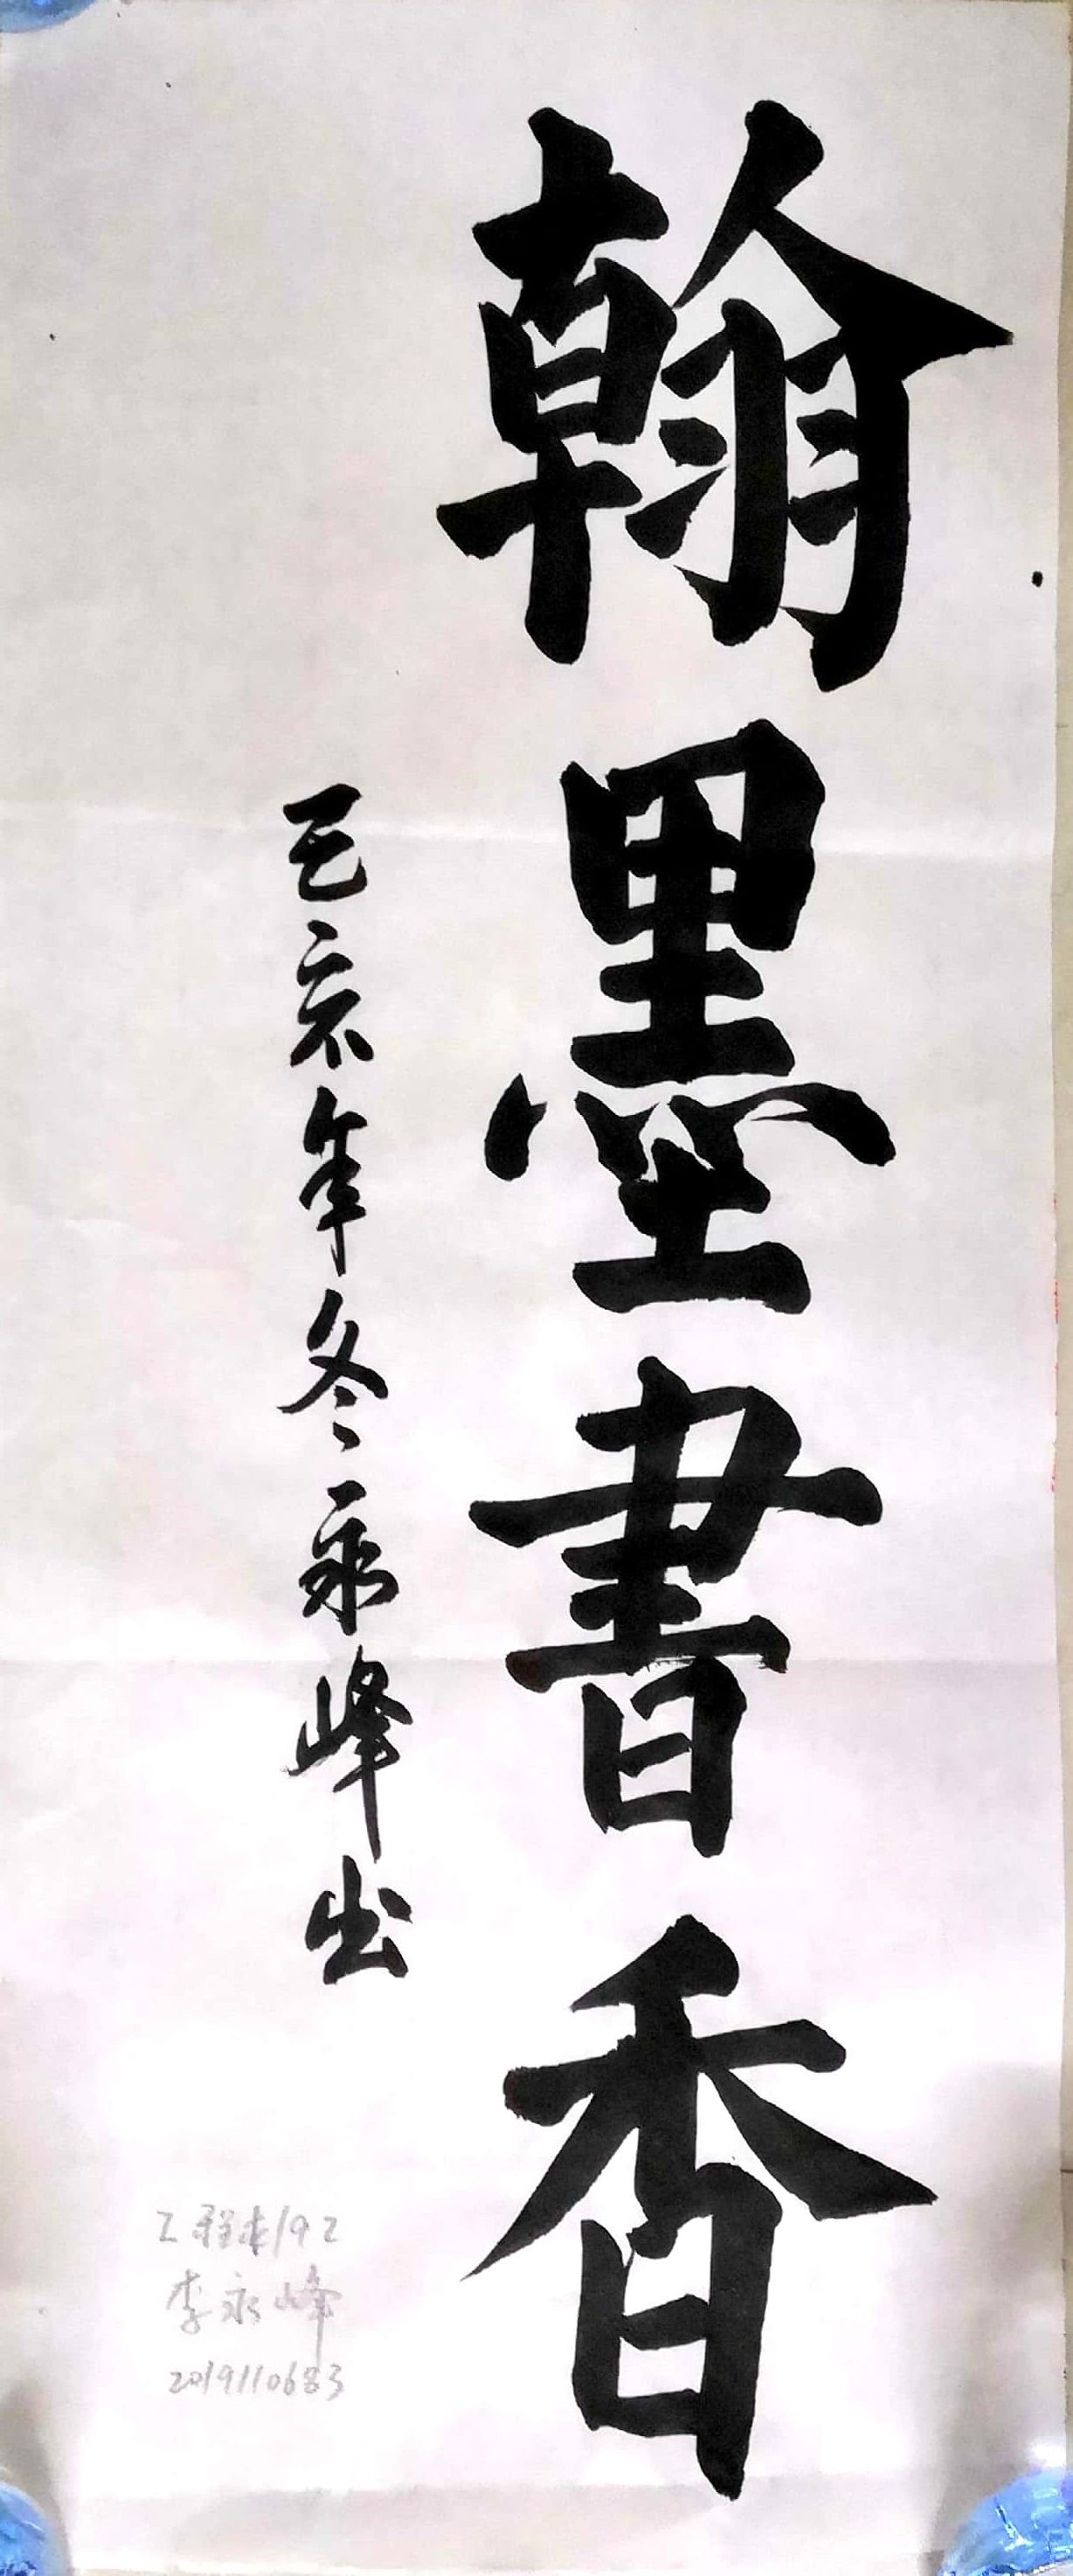 翰墨書香
己亥年冬永峰出
工程本192
李永峰
2019110683